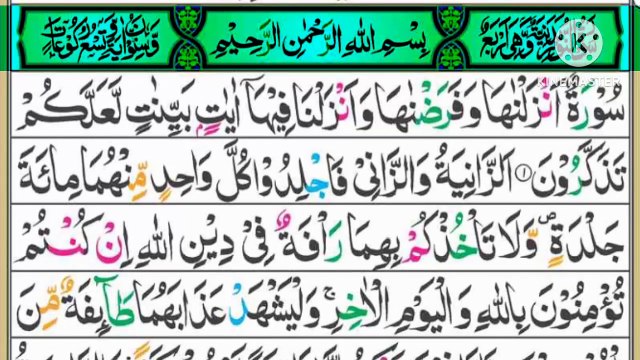 بِسْمِ اللهِ الرَّحْمٰنِ الرَّحِيْمِ
KINEMASTER
سُوْرَةٌ اَنْزَلْنٰهَا وَفَرَضْنٰهَا وَاَنْزَلْنَا فِيْهَاۤ اٰيٰتٍۭ بَيِّنٰتٍ لَّعَلَّكُمْ
تَذَكَّرُوْنَ ۝۱ اَلزَّانِيَةُ وَالزَّانِيْ فَاجْلِدُوْا كُلَّ وَاحِدٍ مِّنْهُمَا مِائَةَ
جَلْدَةٍ ۪ وَّلَا تَاْخُذْكُمْ بِهِمَا رَاْفَةٌ فِيْ دِيْنِ اللهِ اِنْ كُنْتُمْ
تُؤْمِنُوْنَ بِاللهِ وَالْيَوْمِ الْاٰخِرِ ۚ وَلْيَشْهَدْ عَذَابَهُمَا طَآئِفَةٌ مِّنَ